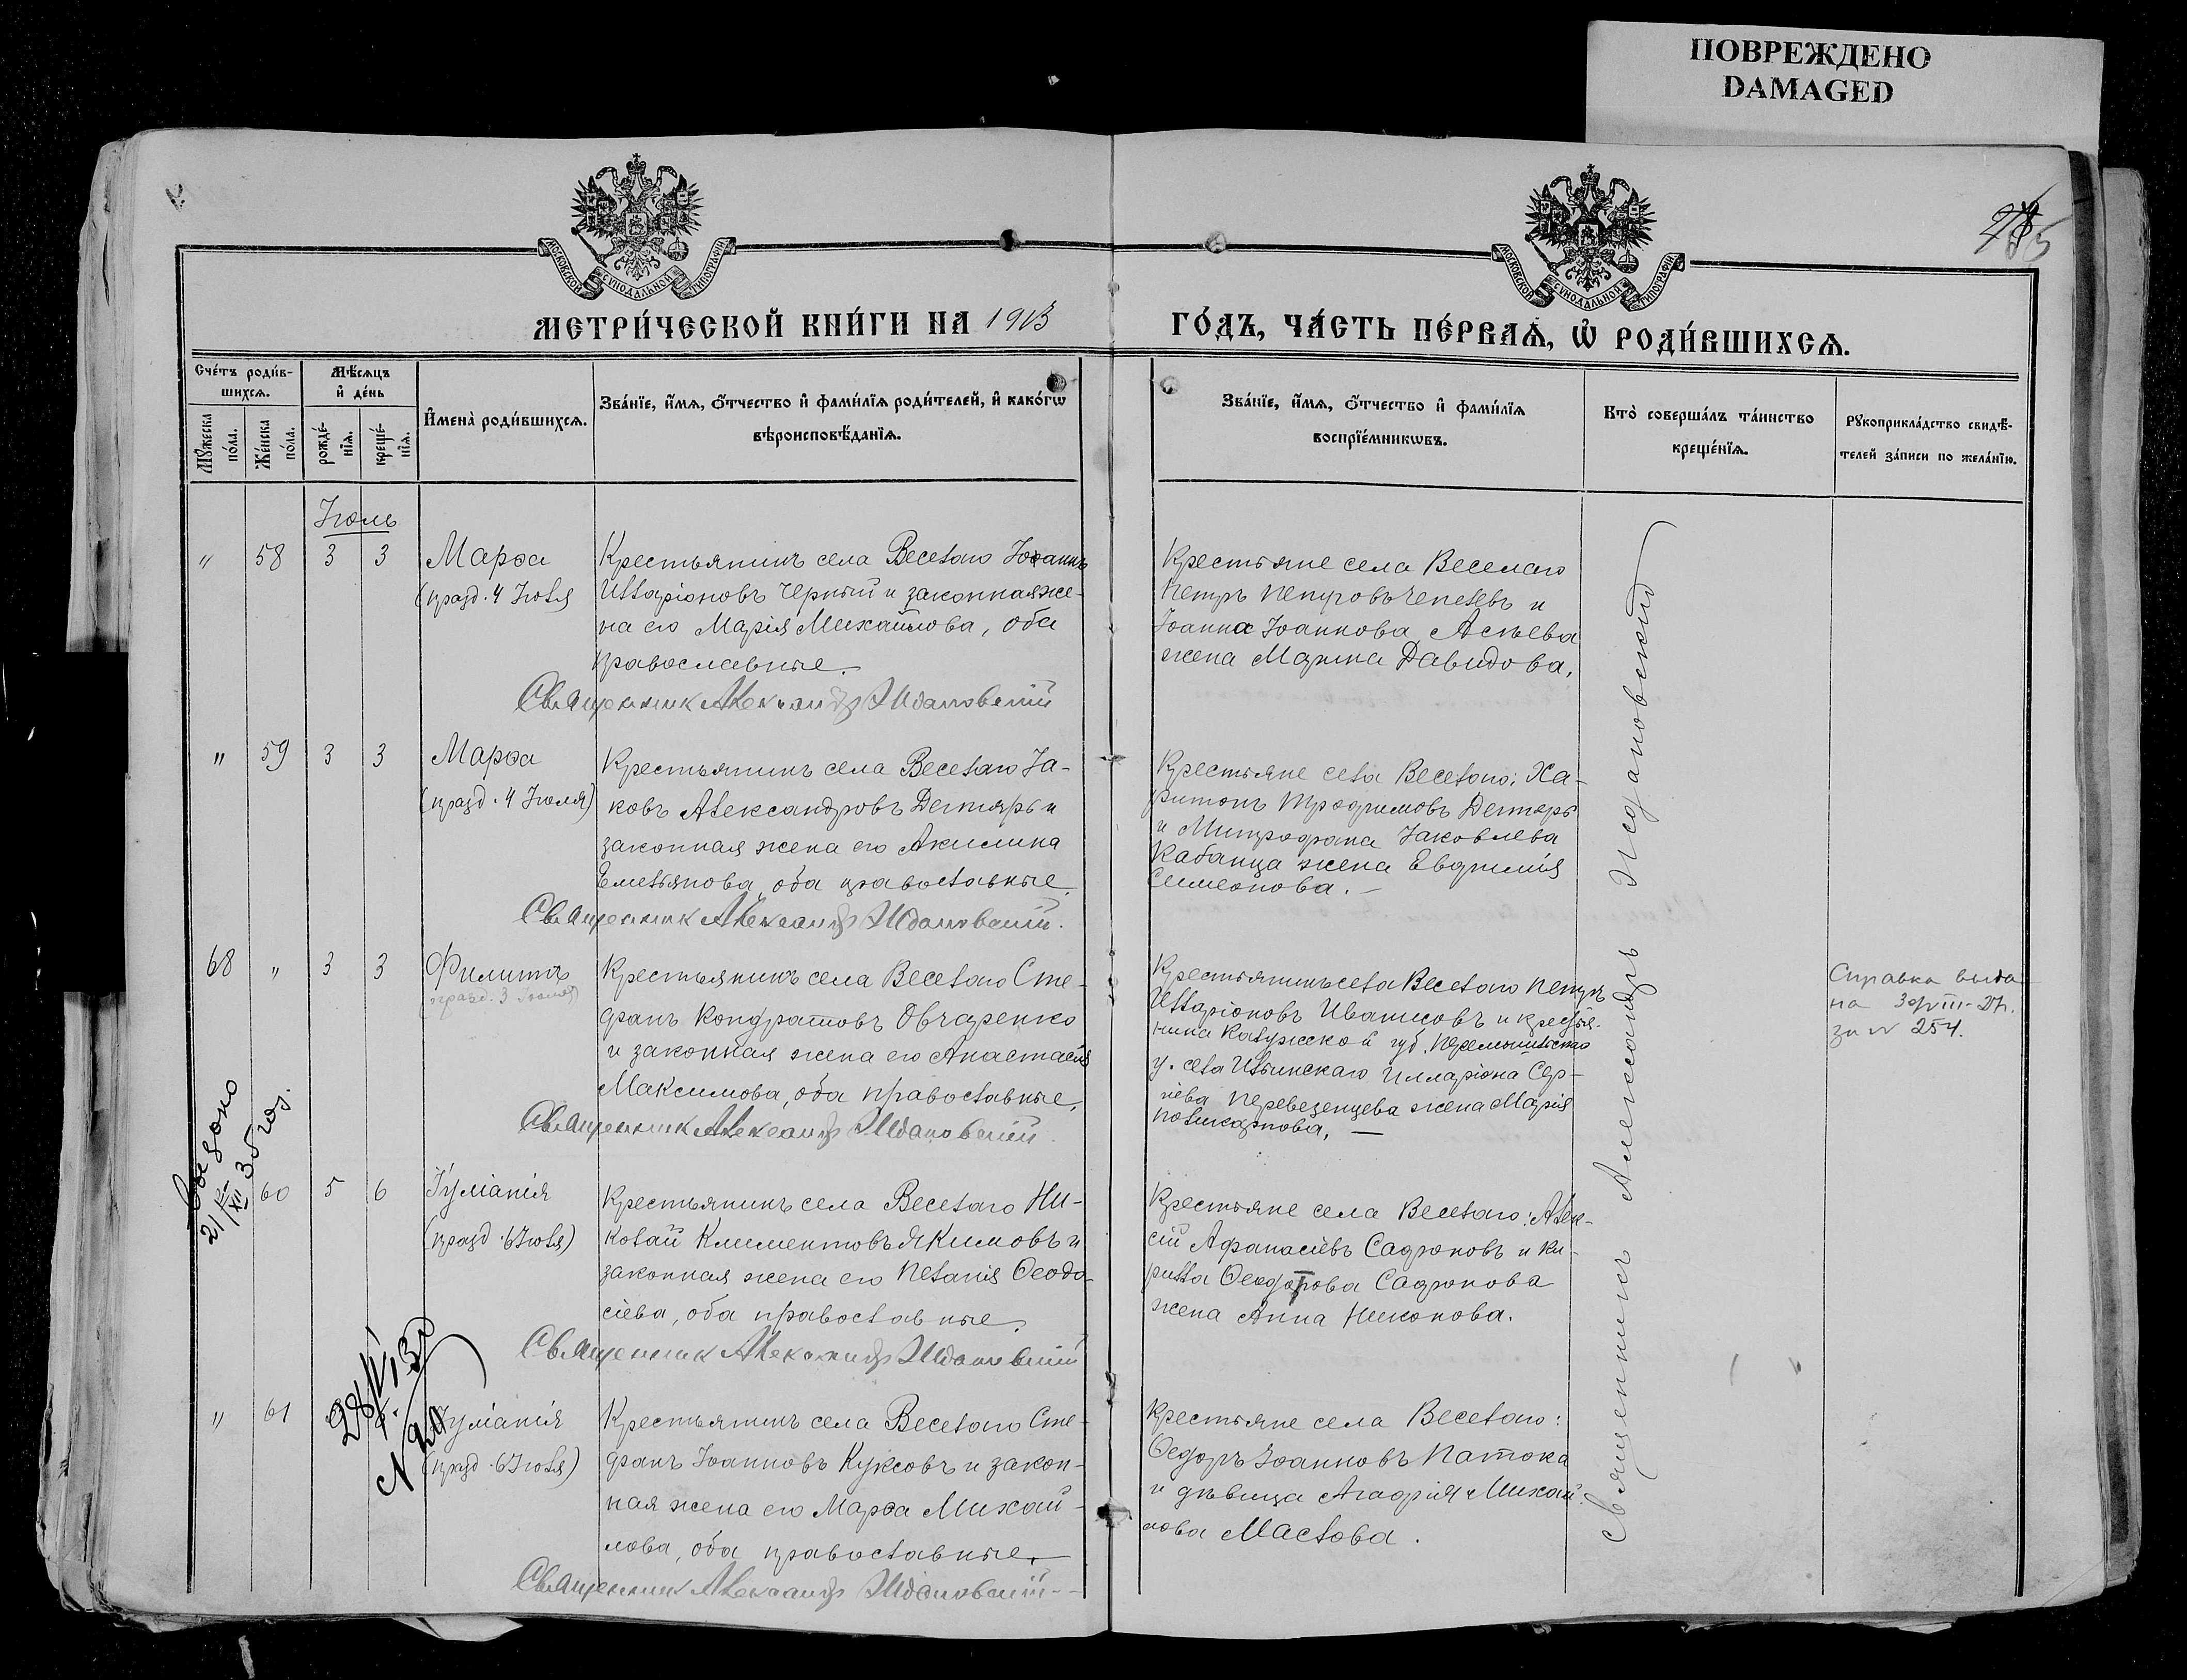 ПОВРЕЖДЕНО
DAMAGED
МОСКОВСКОЙ СѴНОДАЛЬНОЙ ТИПОГРАФІИ
МОСКОВСКОЙ СѴНОДАЛЬНОЙ ТИПОГРАФІИ
МЕТРИ́ЧЕСКОЙ КНИ́ГИ НА 1913
ГО́ДЪ, ЧА́СТЬ ПЕ́РВАѦ, Ѡ҆ РОДИ́ВШИХСѦ.
Сче́тъ роди́в-
шихсѧ.
Мꙋ́жеска
по́ла.
Же́нска
по́ла.
Мѣ́сяцъ
и҆ де́нь
рожде́-
нїѧ.
креще́-
нїѧ.
И҆мена̀ роди́вшихсѧ.
Зва́нїе, и҆́мѧ, ѻ҆́тчество и҆ фами́лїѧ роди́телей, и҆ како́гѡ
вѣроисповѣ́данїѧ.
Зва́нїе, и҆́мѧ, ѻ҆́тчество и҆ фами́лїѧ
воспрїе́мникѡвъ.
Кто̀ соверша́лъ та́инство
креще́нїѧ.
Рꙋкоприкла́дство свидѣ́-
телей за́писи по жела́нїю.
Іюль
" 58 3 3
Марѳа
(празд. 4 Іюля
Крестьянинъ села Веселаго Іоаннъ
Илларіоновъ Черный и законная же-
на его Марія Михайлова, оба
православные.
Священник Александр Ждановский
Крестьяне села Веселаго
Петръ Петровъ и
Іоанна Іоаннова
жена Марина Давидова.
" 59 3 3
Марѳа
(празд. 4 Іюля)
Крестьянинъ села Веселаго Іа-
ковъ Александровъ Дегтярь и
законная жена его Акилина
Емельянова, оба православные.
Священник Александр Ждановский.
Крестьяне села Веселаго: Ха-
ритонъ Трофимовъ Дегтярь
и Митрофана Іаковлева
Кабанца жена Евфимія
Симеонова. —
68 " 3 3
Филиппъ
празд. 3 Іюля)
Крестьянинъ села Веселаго Сте-
фанъ Кондратовъ Овчаренко
и законная жена его Анастасія
Максимова, оба православные.
Священник Александр Ждановский.
Крестьянинъ села Веселаго Петръ
Илларіоновъ и крестья-
нина Калужской губ. Перемышльскаго
у. села Ильинскаго Илларіона Сер-
гіева Перевезенцева жена Марія
Поликарпова. —
Справка выда
на
за № 254.
60 5 6
Іуліанія
(празд. 6 Іюля)
Крестьянинъ села Веселаго Ни-
колай Климентовъ Якимовъ и
законная жена его Пелагія Ѳеодо-
сіева, оба православные.
Священник Александр Ждановский
Крестьяне села Веселаго: Алек-
сій Афанасіевъ Сафроновъ и Ки-
рилла Ѳеодорова Сафронова
жена Анна Никонова.
" 61
Іуліанія
(празд. 6 Іюля)
Крестьянинъ села Веселаго Сте-
фанъ Іоанновъ Куксовъ и закон-
ная жена его Марѳа Михай-
лова, оба православные.
Священник Александр Ждановский
Крестьяне села Веселаго:
Ѳедоръ Іоанновъ Патока
и дѣвица Агафія Михай-
лова Маслова.
Священникъ Александръ Ждановскій